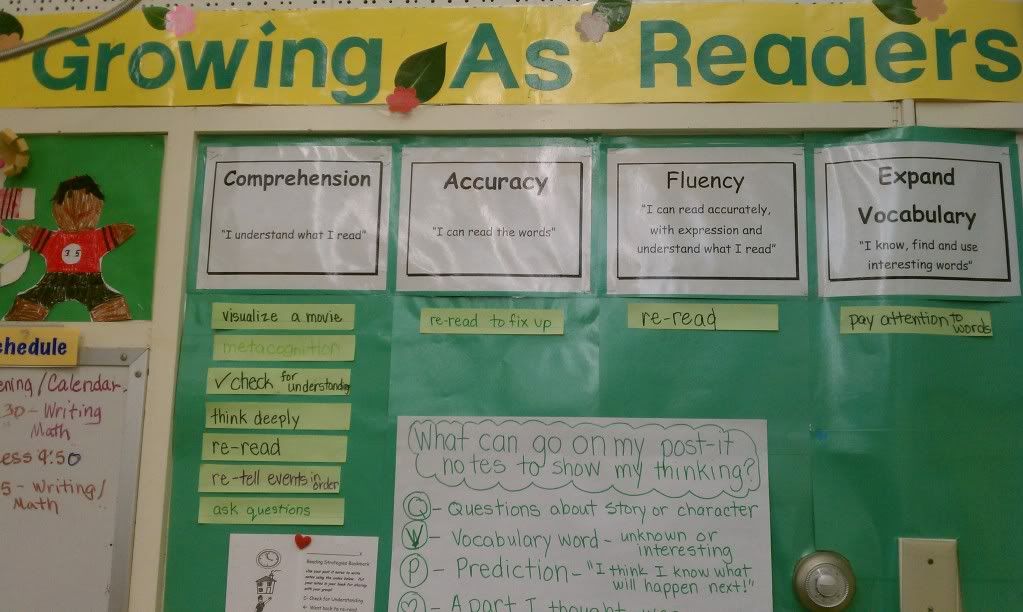 Growing As Readers
Comprehension
"I understand what I read"
Accuracy
"I can read the words"
Fluency
"I can read accurately,
with expression and
understand what I read"
Expand
Vocabulary
"I know, find and use
interesting words"
visualize a movie
metacognition
✓check for understanding
think deeply
re-read
re-tell events in order
ask questions
re-read to fix up
re-read
pay attention to words
35
chedule
ening/Calendar
30 - Writing
Math
ess 9:50
5 - Writing/
Math
What can go on my post-it
notes to show my thinking?
Q - Questions about story or character
V - Vocabulary word - unknown or
interesting
P - Prediction - "I think I know what
will happen next!"
♡ - A part I thought was
Reading Strategies Bookmark